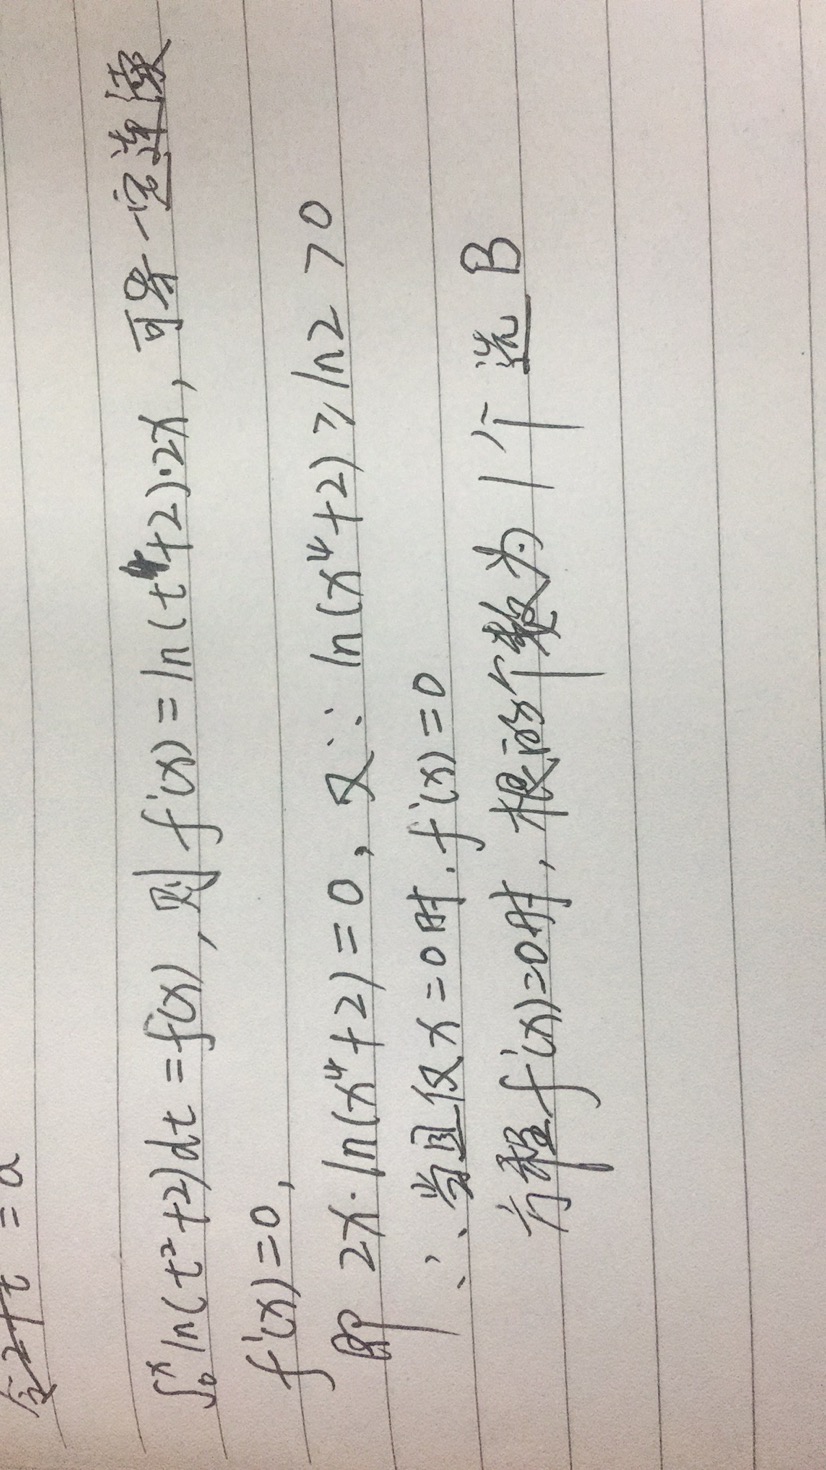 令2+t = a
∫₀ˣ ln(t²+2)dt = f(x), 则 f'(x) = ln(t⁴+2)·2x, 可导一定连续
f'(x)=0,
即 2x·ln(x⁴+2)=0, 又∵ ln(x⁴+2) ≥ ln2 > 0
∴ 当且仅x=0时, f'(x)=0
方程f'(x)=0时, 根的个数为1个 选B